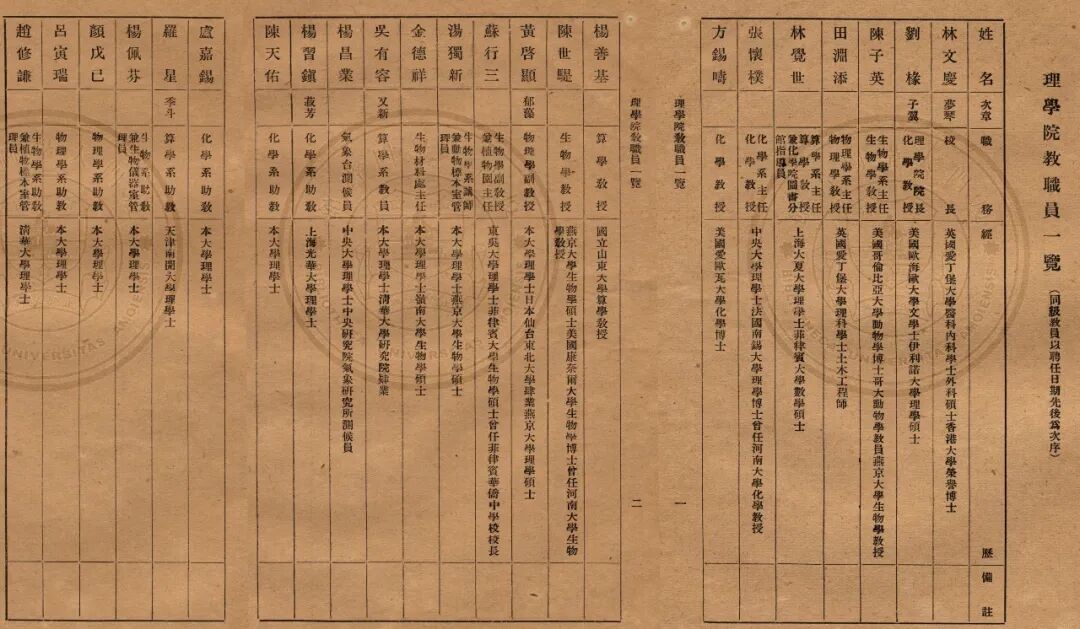 理學院教職員一覽
（同級教員以聘任日期先後爲次序）
姓名 次章 職務 經歷 備註
林文慶 夢琴 校長 英國愛丁堡大學醫科內科學士外科碩士香港大學榮譽博士
劉椽 子翼 理學院院長 化學教授 美國歐海歐大學文學士伊利諾大學理學碩士
陳子英 生物學系主任 生物學教授 美國哥倫比亞大學動物學博士哥大動物學教員燕京大學生物學教授
田淵添 物理學系主任 物理學教授 英國愛丁堡大學理科學士土木工程師
林覺世 算學系主任 算學教授 兼化學院圖書分館指導員 上海大夏大學理學士菲律賓大學數學碩士
張懷樸 化學系主任 化學教授 中央大學理學士法國南錫大學理學博士曾任河南大學化學教授
方錫疇 化學教授 美國愛歐瓦大學化學博士
理學院教職員一覽
一
理學院教職員一覽
二
楊善基 算學教授 國立山東大學算學教授
陳世騉 生物學教授 燕京大學生物學碩士美國康奈爾大學生物學博士曾任河南大學生物學教授
黃啓顯 郁藻 物理學副教授 本大學理學士日本仙台東北大學肄業燕京大學理學碩士
蘇行三 生物學副教授 兼植物園主任 東吳大學理學士菲律賓大學生物學碩士曾任菲律賓華僑中學校校長
湯獨新 生物學系講師 兼動物標本室管理員 本大學理學士燕京大學生物學碩士
金德祥 生物材料處主任 本大學理學士嶺南大學生物學碩士
吳有容 又新 算學系教員 本大學理學士清華大學研究院肄業
楊昌業 氣象台測候員 中央大學理學士中央研究院氣象研究所測候員
楊習鎮 菽芳 化學系助教 上海光華大學理學士
陳天佑 化學系助教 本大學理學士
盧嘉錫 化學系助教 本大學理學士
羅星 季斗 算學系助教 天津南開大學理學士
楊佩芬 生物系助教 兼生物儀器室管理員 本大學理學士
顏戊己 物理學系助教 本大學理學士
呂寅瑞 物理學系助教 本大學理學士
趙修謙 生物學系助教 兼植物標本室管理員 清華大學理學士
UNIVERSITAS